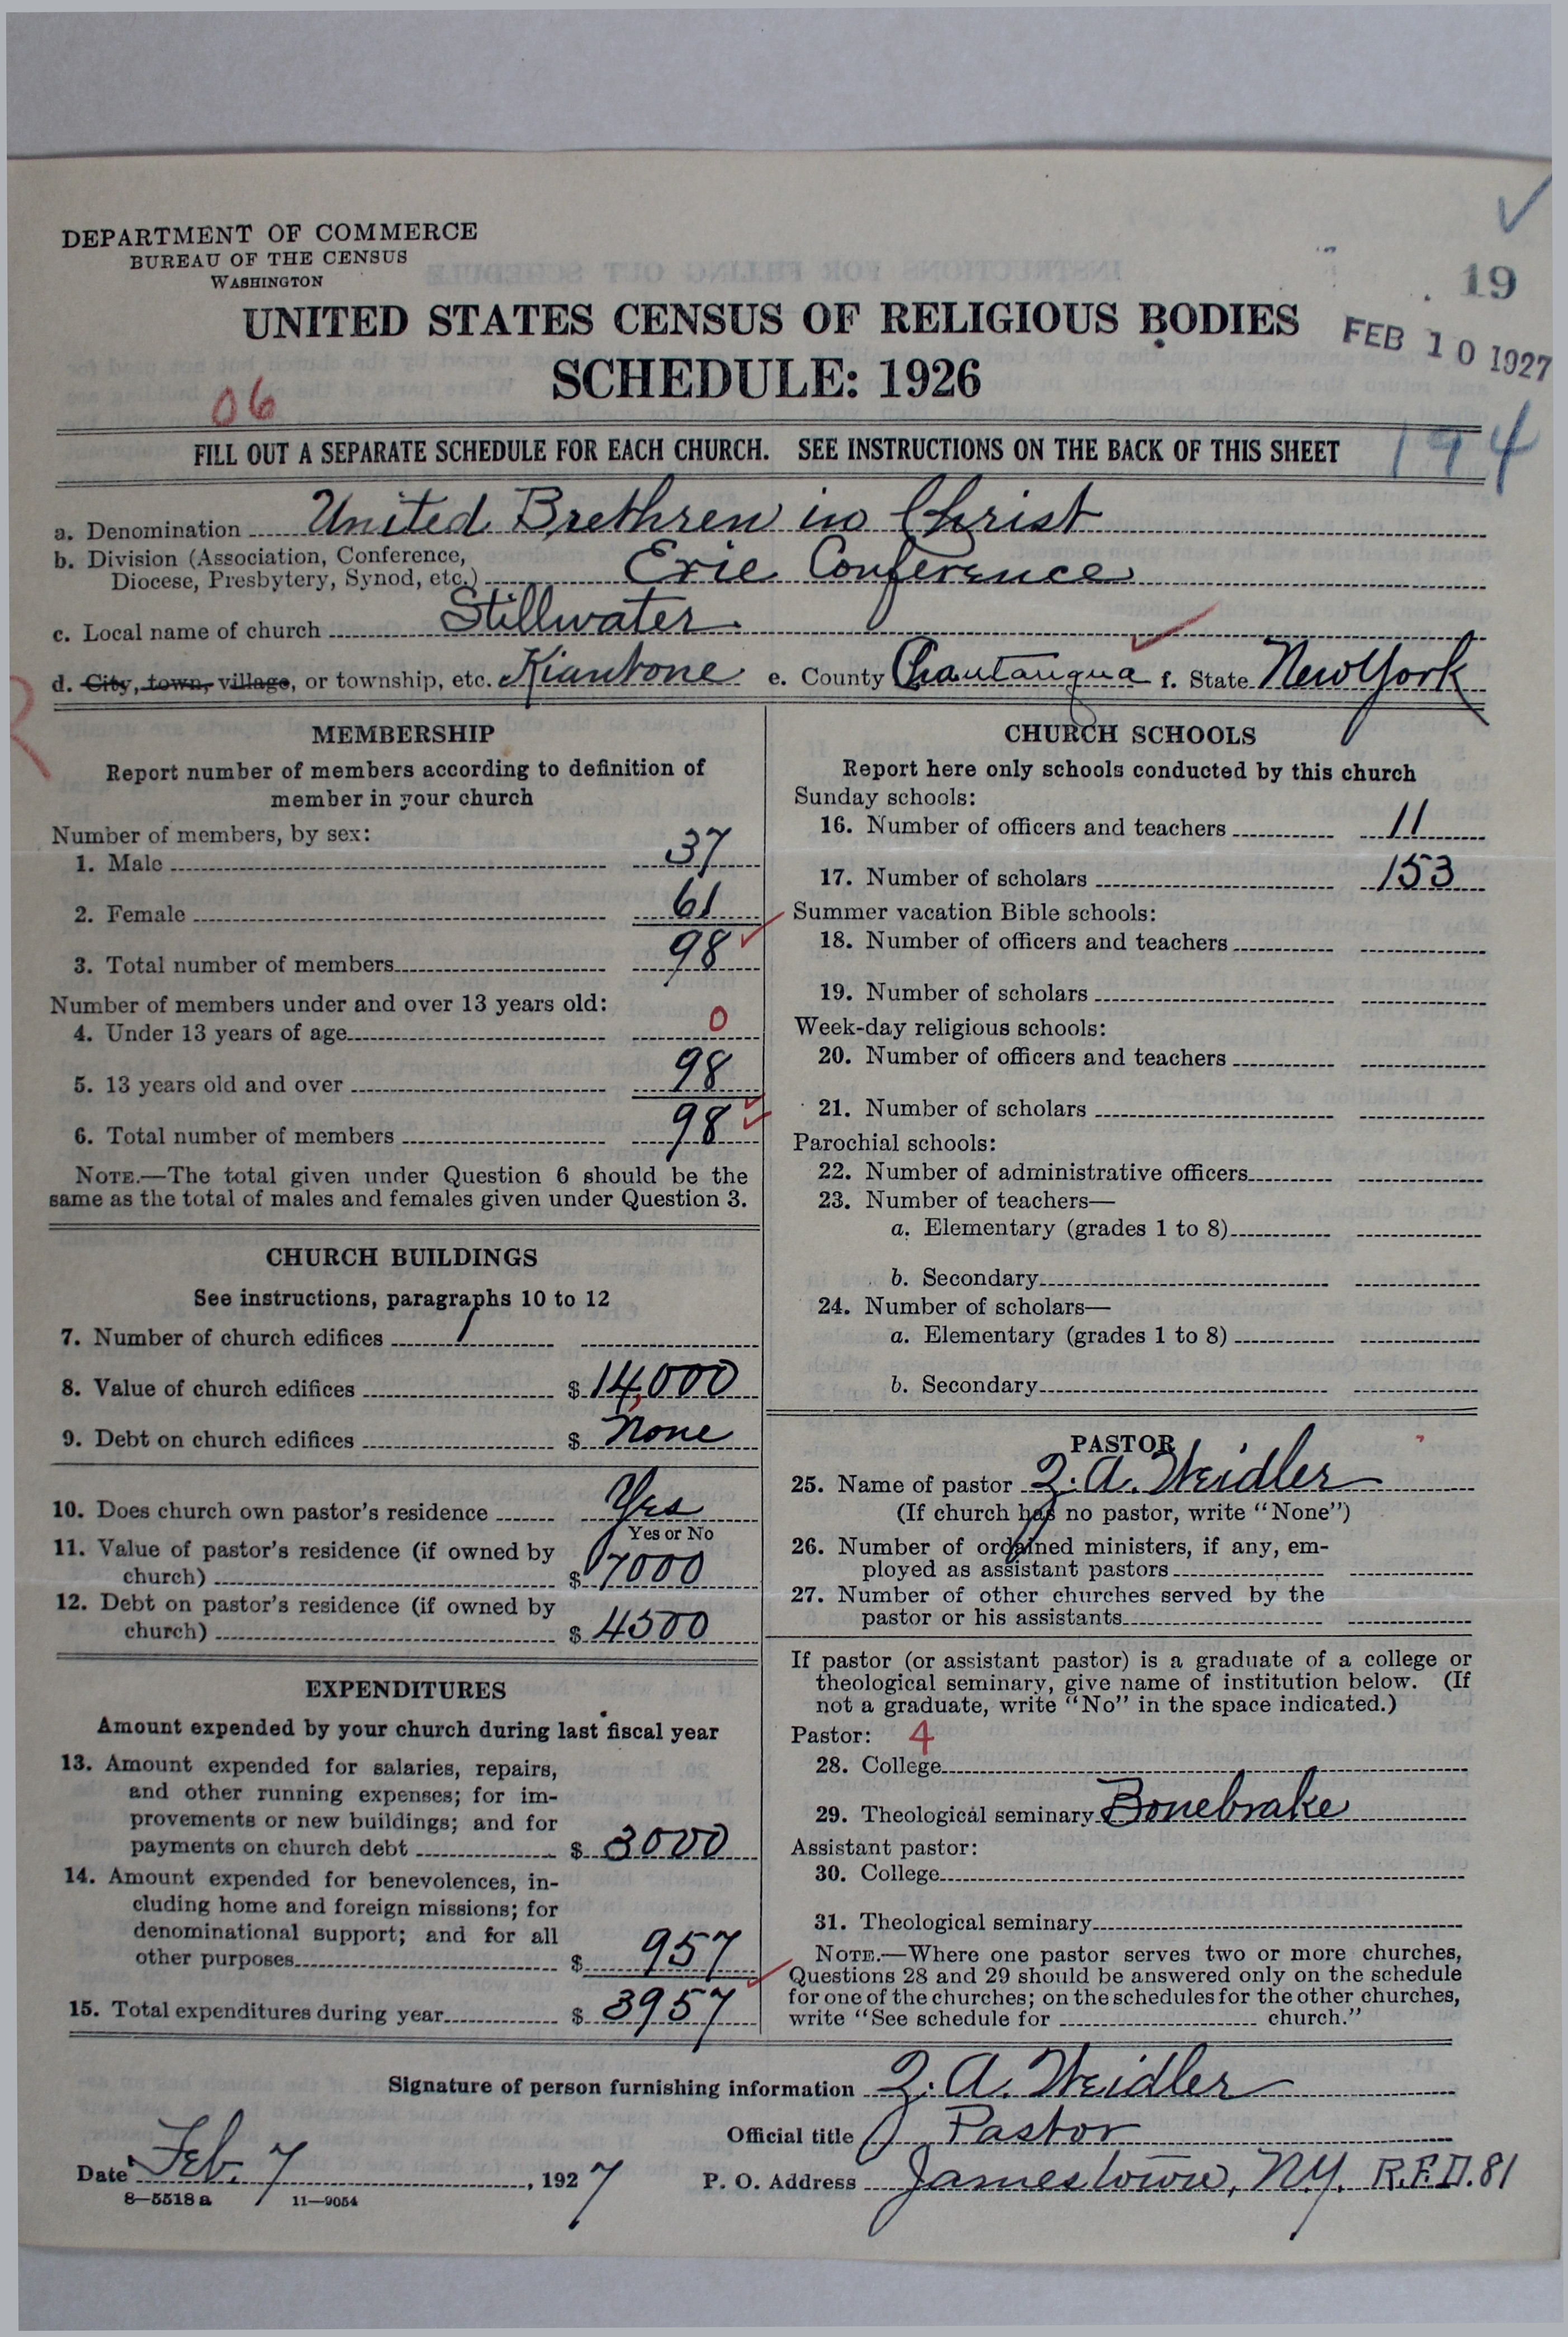 DEPARTMENT OF COMMERCE
BUREAU OF THE CENSUS
WASHINGTON
19
UNITED STATES CENSUS OF RELIGIOUS BODIES
FEB 10 1927
SCHEDULE: 1926
06
FILL OUT A SEPARATE SCHEDULE FOR EACH CHURCH. SEE INSTRUCTIONS ON THE BACK OF THIS SHEET
194
a. Denomination United Brethren in Christ
b. Division (Association, Conference,
Diocese, Presbytery, Synod, etc.) Erie Conference
c. Local name of church Stillwater
d. City, town, village, or township, etc. Kiantone e. County Chautauqua f. State New York
MEMBERSHIP
Report number of members according to definition of
member in your church
Number of members, by sex:
1. Male 37
2. Female 61
3. Total number of members 98
Number of members under and over 13 years old:
4. Under 13 years of age 0
5. 13 years old and over 98
6. Total number of members 98
NOTE.—The total given under Question 6 should be the
same as the total of males and females given under Question 3.
CHURCH BUILDINGS
See instructions, paragraphs 10 to 12
7. Number of church edifices 1
8. Value of church edifices $ 14,000
9. Debt on church edifices $ None
10. Does church own pastor's residence Yes
Yes or No
11. Value of pastor's residence (if owned by
church) $ 7000
12. Debt on pastor's residence (if owned by
church) $ 4500
EXPENDITURES
Amount expended by your church during last fiscal year
13. Amount expended for salaries, repairs,
and other running expenses; for im-
provements or new buildings; and for
payments on church debt $ 3000
14. Amount expended for benevolences, in-
cluding home and foreign missions; for
denominational support; and for all
other purposes $ 957
15. Total expenditures during year $ 3957
CHURCH SCHOOLS
Report here only schools conducted by this church
Sunday schools:
16. Number of officers and teachers 11
17. Number of scholars 153
Summer vacation Bible schools:
18. Number of officers and teachers
19. Number of scholars
Week-day religious schools:
20. Number of officers and teachers
21. Number of scholars
Parochial schools:
22. Number of administrative officers
23. Number of teachers—
a. Elementary (grades 1 to 8)
b. Secondary
24. Number of scholars—
a. Elementary (grades 1 to 8)
b. Secondary
PASTOR
25. Name of pastor Q. A. Weidler
(If church has no pastor, write "None")
26. Number of ordained ministers, if any, em-
ployed as assistant pastors
27. Number of other churches served by the
pastor or his assistants
If pastor (or assistant pastor) is a graduate of a college or
theological seminary, give name of institution below. (If
not a graduate, write "No" in the space indicated.)
Pastor: 4
28. College
29. Theological seminary Bonebrake
Assistant pastor:
30. College
31. Theological seminary
NOTE.—Where one pastor serves two or more churches,
Questions 28 and 29 should be answered only on the schedule
for one of the churches; on the schedules for the other churches,
write "See schedule for church."
Signature of person furnishing information Q. A. Weidler
Official title Pastor
Date Feb. 7, 1927 P. O. Address Jamestown, N.Y. R.F.D. 81
8—5518 a 11—9054